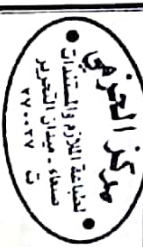 مركز الحزمي
لطباعة الأفرع والمستندات
صنعاء - ميدان التحرير
ت ٢٧٠٠٢٧